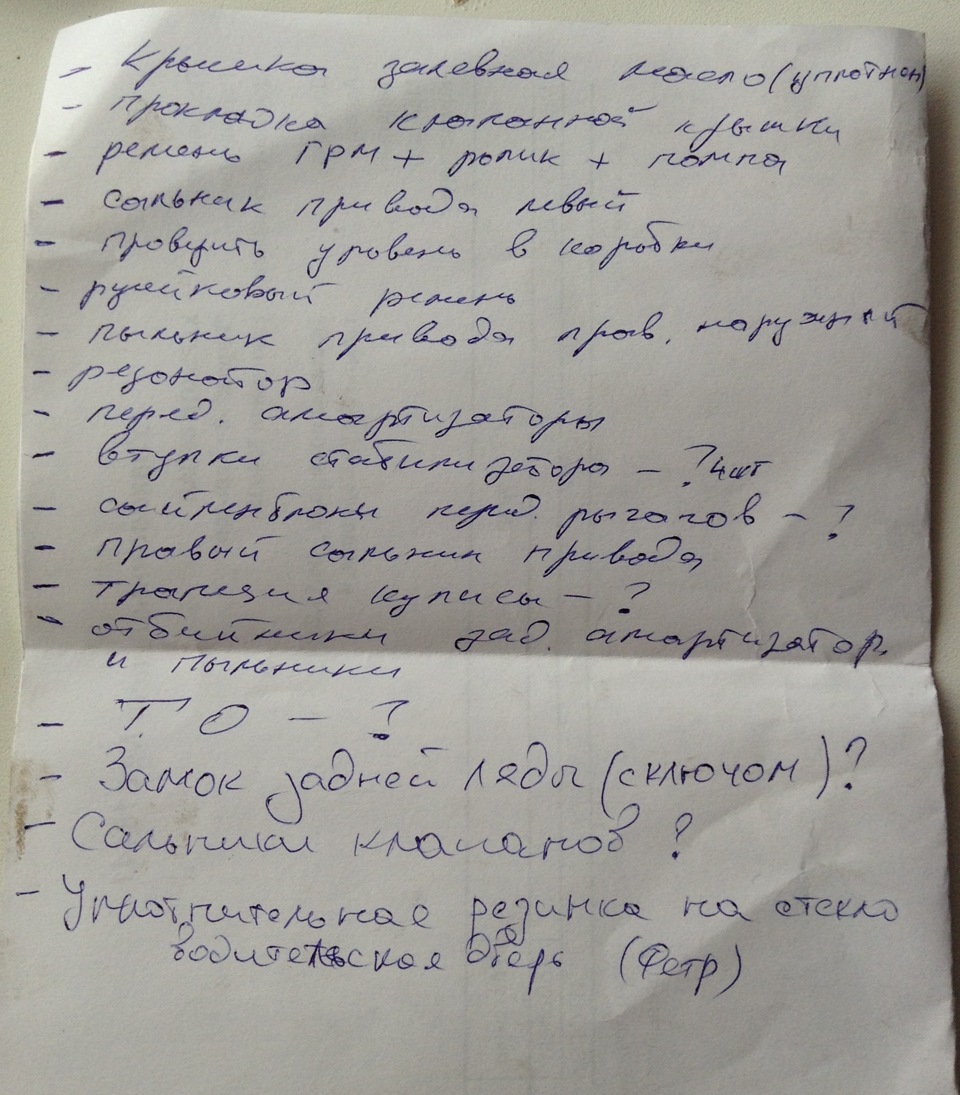 - Крышка заливная масло (уплотнен)
- прокладка клапанной крышки
- ремень ГРМ + ролик + помпа
- сальник привода левый
- проверить уровень в коробки
- ручейковый ремень
- пыльник привода прав. наружный
- резонатор
- перед. амартизаторы
- втулки стабилизатора - ? 4шт
- сайленблоки перед. рычагов - ?
- правый сальник привода
- трапеция кулисы - ?
- отбойники зад. амартизатор.
и пыльники
- Т О - ?
- Замок задней ляды (с ключом)?
- Сальники клапанов ?
- Уплотнительная резинка на стекло
водительская дверь (Фетр)